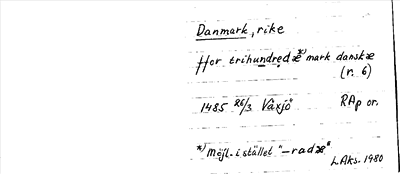 Danmark, rike
Hor trihundredæ*) mark danskæ
(r. 6)
1485 26/3 Växjö RAp or.
*) Möjl. i stället "-radæ"
L.Aks. 1980